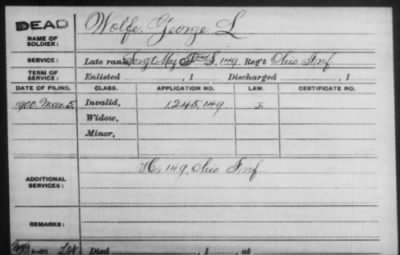 DEAD
NAME OF SOLDIER: Wolfe, George L
SERVICE: Late rank, Sergt Maj F&S, 149 Reg't Ohio Inf
TERM OF SERVICE: Enlisted , 1 Discharged , 1
DATE OF FILING. CLASS. APPLICATION NO. LAW. CERTIFICATE NO.
1900, Mar 5, Invalid, 1245,149
Widow,
Minor,
ADDITIONAL SERVICES: 149, Ohio Inf
REMARKS:
Died , 1 , at